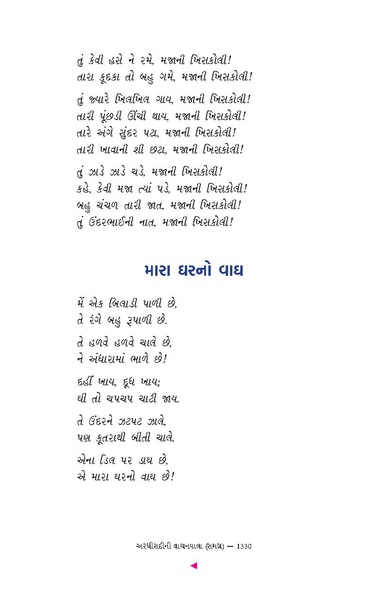 તું કેવી હસે ને રમે, મજાની ખિસકોલી!
તારા કૂદકા તો બહુ ગમે, મજાની ખિસકોલી!
તું જ્યારે ખિલખિલ ગાય, મજાની ખિસકોલી!
તારી પૂંછડી ઊંચી થાય, મજાની ખિસકોલી!
તારે અંગે સુંદર પટા, મજાની ખિસકોલી!
તારી ખાવાની શી છટા, મજાની ખિસકોલી!
તું ઝાડે ઝાડે ચડે, મજાની ખિસકોલી!
કહે, કેવી મજા ત્યાં પડે, મજાની ખિસકોલી!
બહુ ચંચળ તારી જાત, મજાની ખિસકોલી!
તું ઉંદરભાઈની નાત, મજાની ખિસકોલી!
મારા ઘરનો વાઘ
મેં એક બિલાડી પાળી છે,
તે રંગે બહુ રૂપાળી છે.
તે હળવે હળવે ચાલે છે,
ને અંધારામાં ભાળે છે!
દહીં ખાય, દૂધ ખાય;
ઘી તો ચપચપ ચાટી જાય.
તે ઉંદરને ઝટપટ ઝાલે,
પણ કૂતરાથી બીતી ચાલે.
એના ડિલ પર ડાઘ છે,
એ મારા ઘરનો વાઘ છે!
અરધીસદીની વાચનયાત્રા (સમગ્ર) — 1330